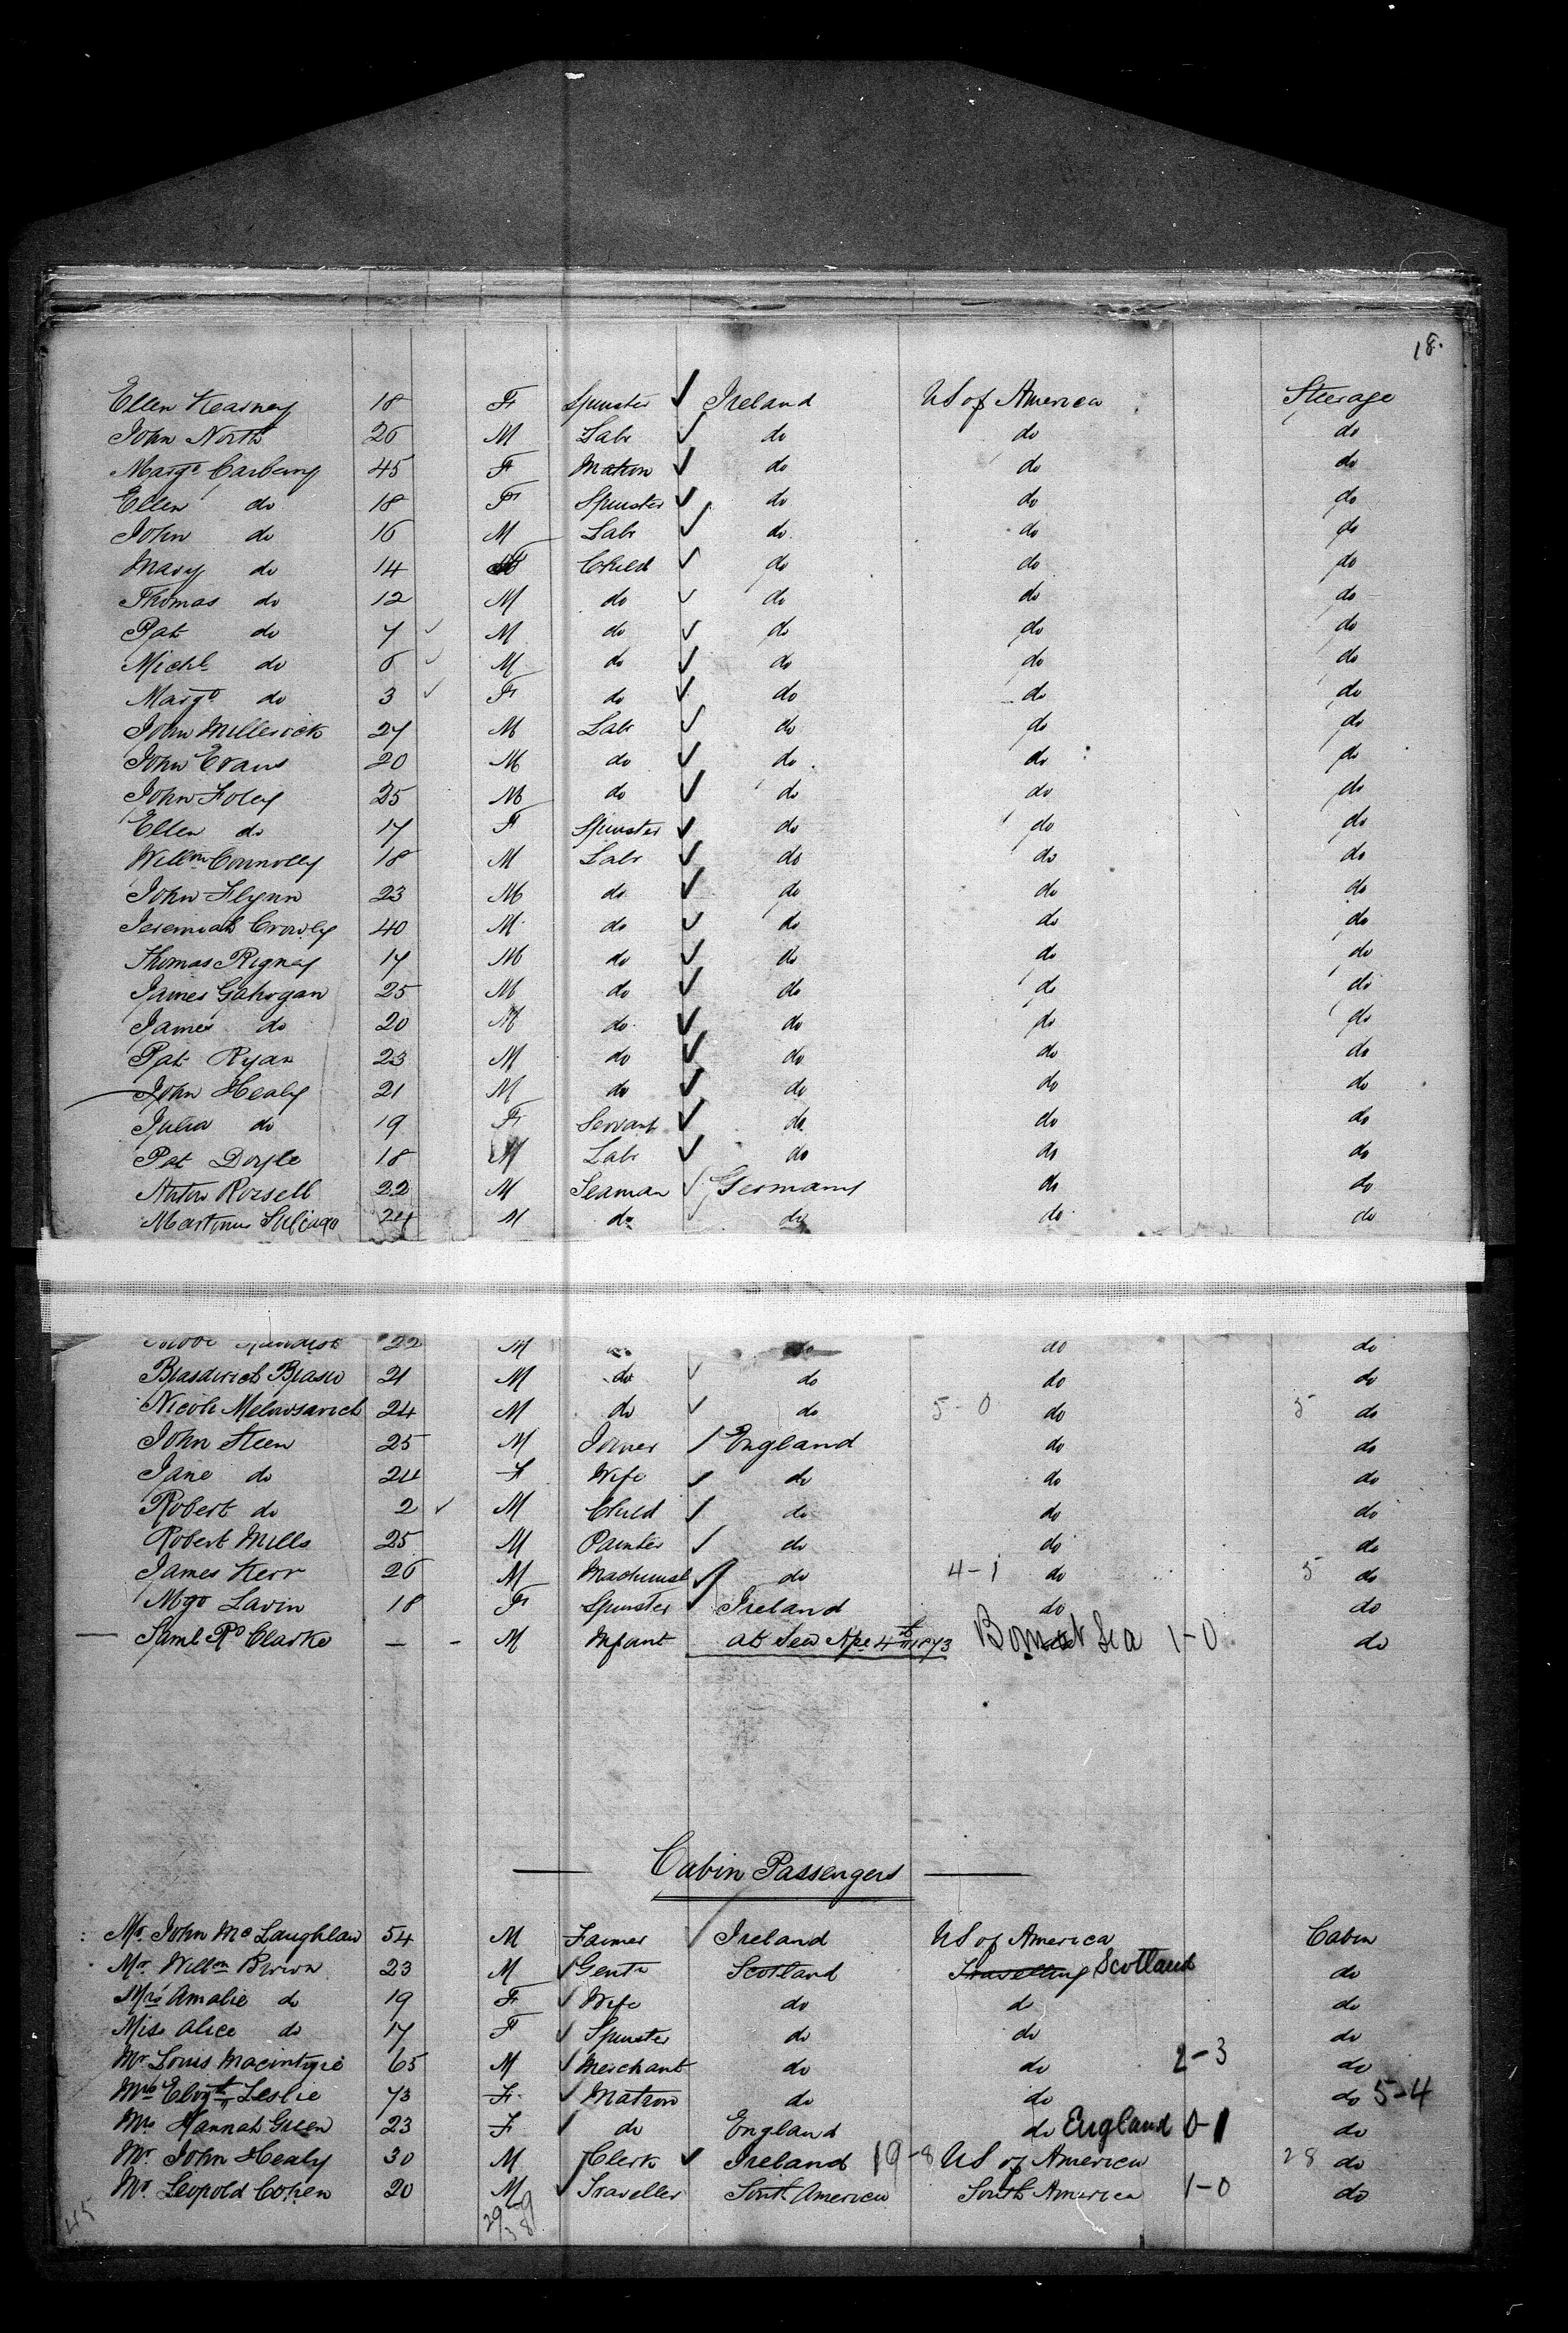 18.
Ellen Kearney 18 F Spinster ✓ Ireland US of America Steerage
John North 26 M Labr ✓ do do do
Margt Carberry 45 F Matron ✓ do do do
Ellen do 18 F Spinster ✓ do do do
John do 16 M Labr ✓ do do do
Mary do 14 F Child ✓ do do do
Thomas do 12 M do ✓ do do do
Pat do 7 ✓ M do ✓ do do do
Michl do 6 ✓ M do ✓ do do do
Margt do 3 ✓ F do ✓ do do do
John Millerick 27 M Labr ✓ do do do
John Evans 20 M do ✓ do do do
John Foley 25 M do ✓ do do do
Ellen do 17 F Spinster ✓ do do do
Willm Connolly 18 M Labr ✓ do do do
John Flynn 23 M do ✓ do do do
Jeremiah Crowly 40 M do ✓ do do do
Thomas Rigney 17 M do ✓ do do do
James Gahogan 25 M do ✓ do do do
James do 20 M do ✓ do do do
Pat Ryan 23 M do ✓ do do do
John Healy 21 M do ✓ do do do
Julia do 19 F Servant ✓ do do do
Pat Doyle 18 M Labr ✓ do do do
Anton Rossell 22 M Seaman ✓ Germany do do
Martinus 24 M do ✓ do do do
22 M do do do
21 M do ✓ do do do
Nicoli 24 M do ✓ do 5-0 do 5 do
John Steen 25 M Joiner ✓ England do do
Jane do 24 F Wife ✓ do do do
Robert do 2 ✓ M Child ✓ do do do
Robert Mills 25 M Painter ✓ do do do
James Kerr 26 M Machinist ✓ do 4-1 do 5 do
Mgt Lavin 18 F Spinster ✓ Ireland do do
Saml Rd Clarke — - M Infant at Sea Apl 4th 1873 Born at Sea 1-0 do
Cabin Passengers
Mr John McLaughlan 54 M Farmer ✓ Ireland US of America Cabin
Mr Willm Brown 23 M ✓ Gentn Scotland Travelling Scotland do
Mrs Amalie do 19 F ✓ Wife do do do
Miss Alice do 17 F ✓ Spinster do do do
Mr Louis Macintyre 65 M ✓ Merchant do do 2-3 do
Mrs Elizth Leslie 73 F ✓ Matron do do do 5-4
Mrs Hannah Green 23 F ✓ do England do England 0-1 do
Mr John Healy 30 M Clerk ✓ Ireland 19-8 US of America 28 do
Mr Leopold Cohen 20 M ✓ Traveller South America South America 1-0 do
45